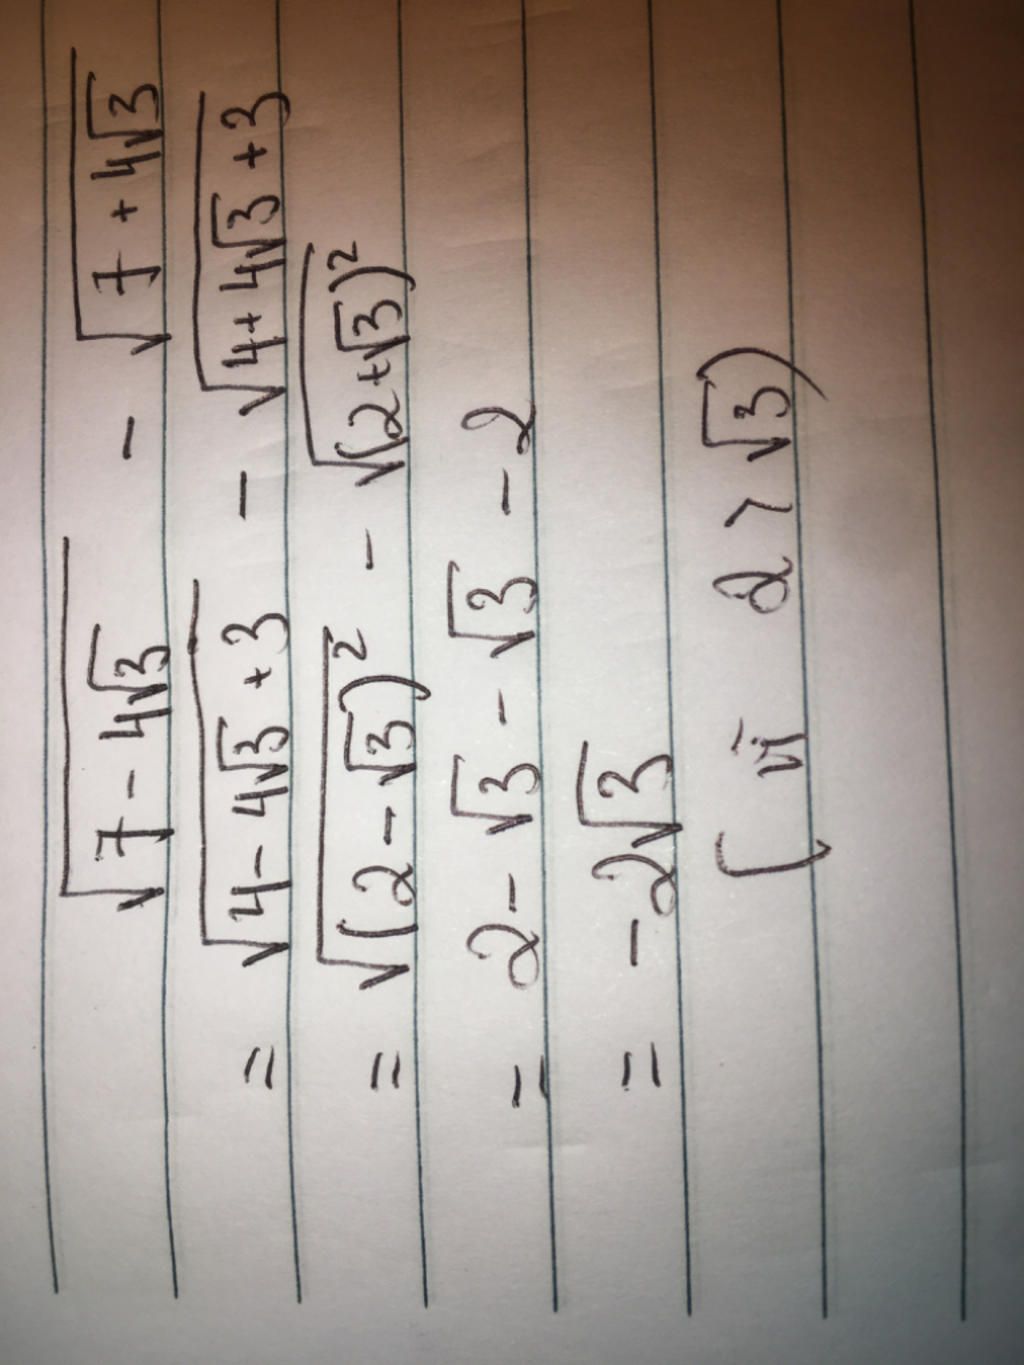 √(7 - 4√3) - √(7 + 4√3)
= √(4 - 4√3 + 3) - √(4 + 4√3 + 3)
= √((2 - √3)²) - √((2 + √3)²)
= 2 - √3 - √3 - 2
= -2√3
(vì 2 > √3)